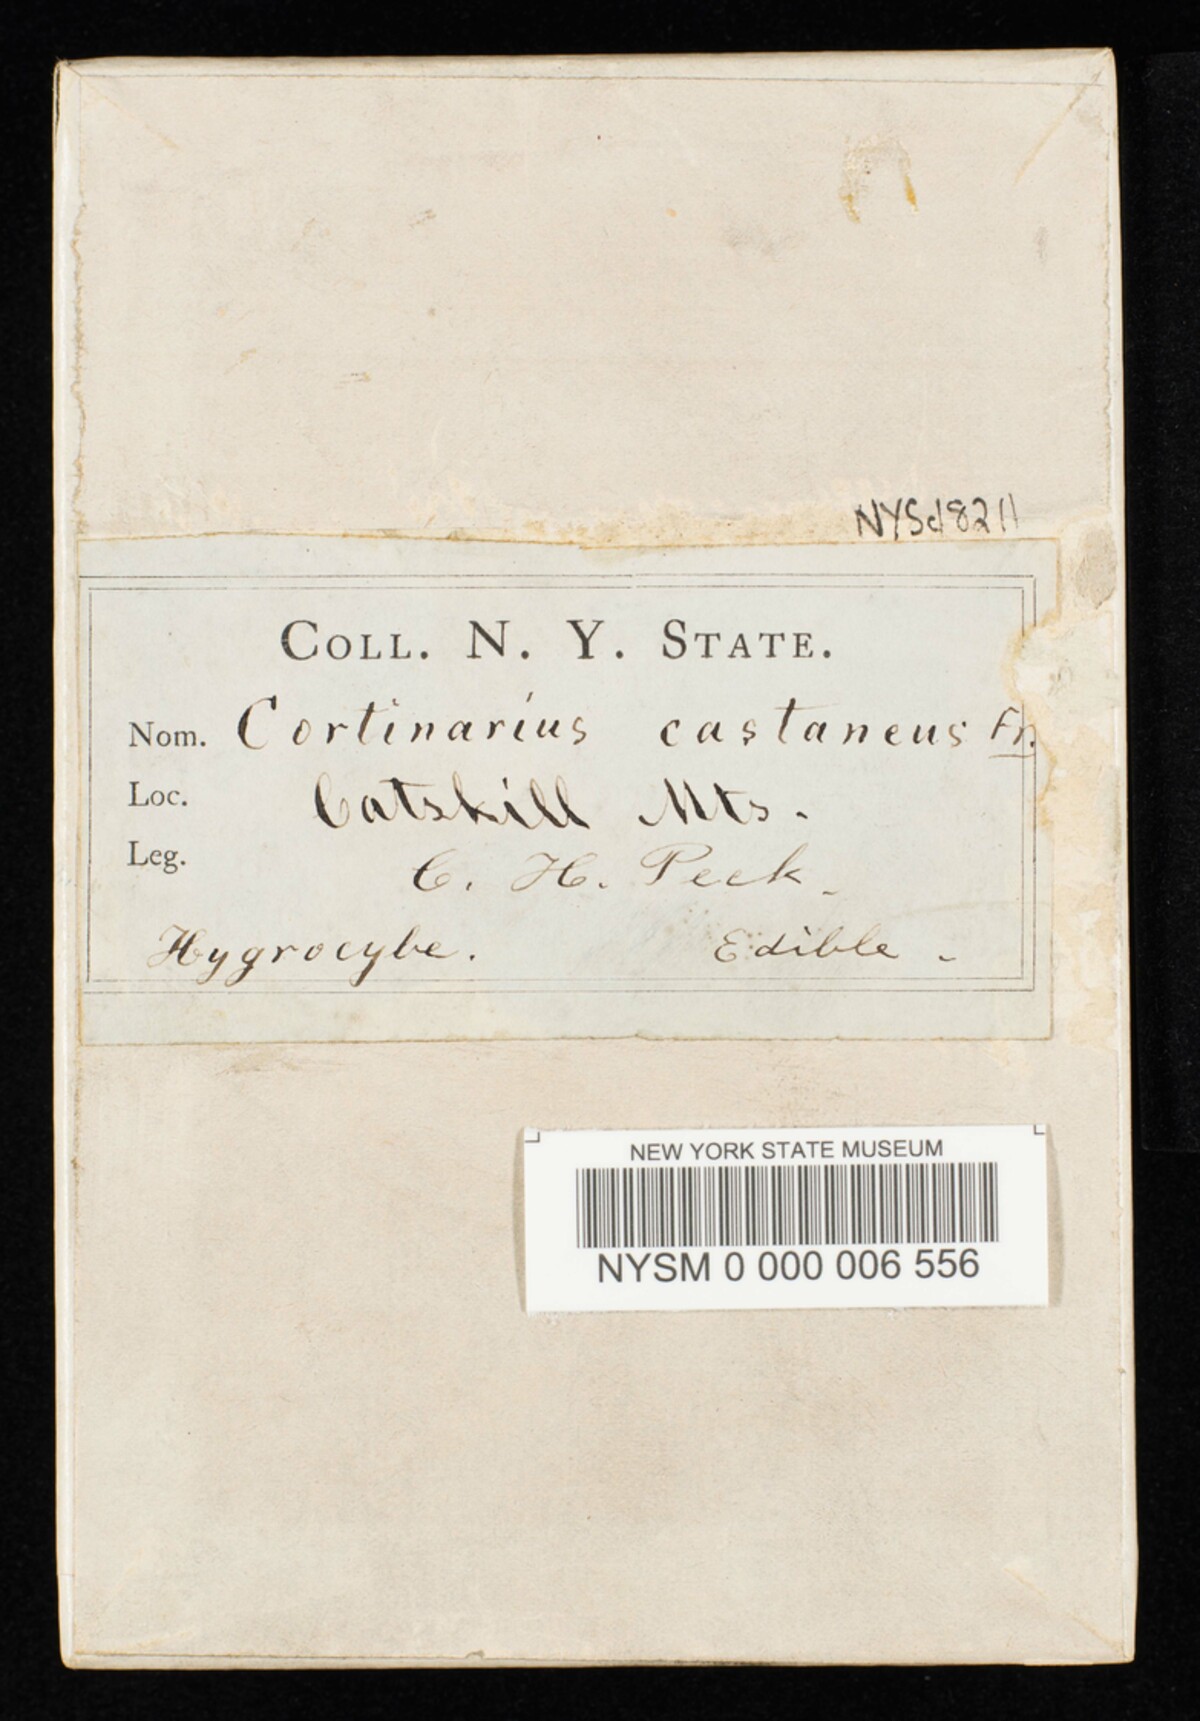 NYSd8211
COLL. N. Y. STATE.
Nom. Cortinarius castaneus Fr.
Loc. Catskill Mts.
Leg. C. H. Peck.
Hygrocybe. Edible.
NEW YORK STATE MUSEUM
NYSM 0 000 006 556